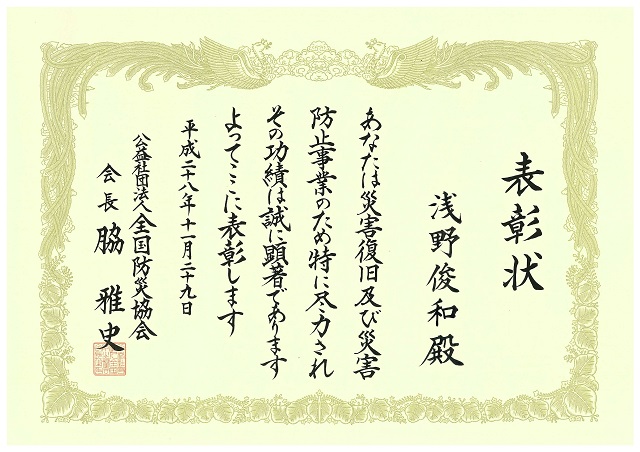 表彰状
浅野俊和殿
あなたは災害復旧及び災害
防止事業のため特に尽力され
その功績は誠に顕著であります
よってここに表彰します
平成二十八年十一月二十九日
公益社団法人全国防災協会
会長 脇 雅史